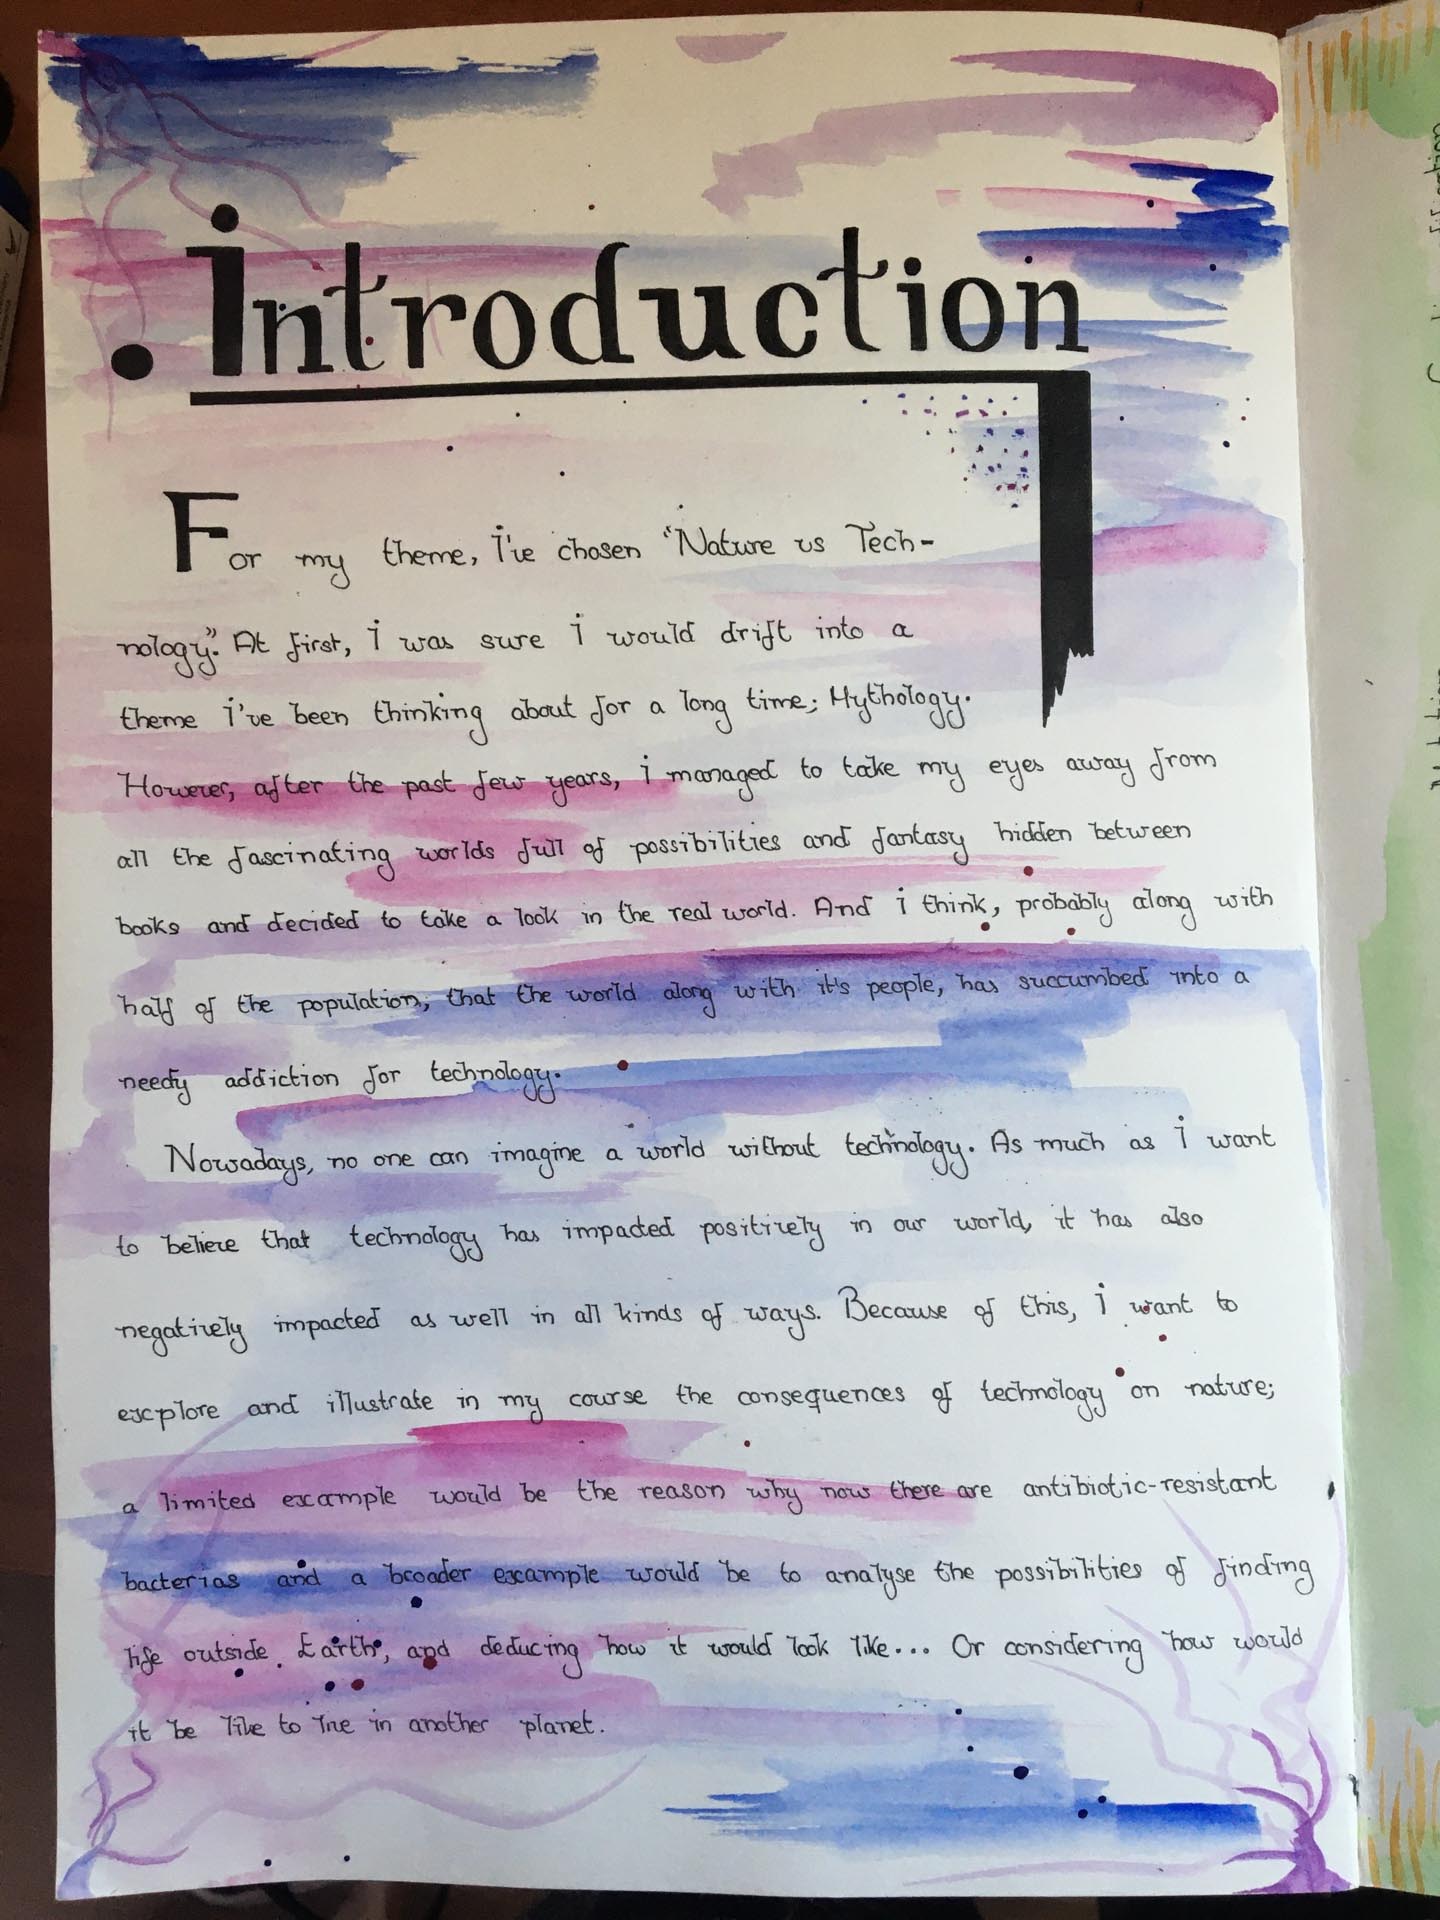 . introduction
For my theme, i've chosen "Nature vs Tech-
nology." At first, i was sure i would drift into a
theme i've been thinking about for a long time; Mythology.
However, after the past few years, i managed to take my eyes away from
all the fascinating worlds full of possibilities and fantasy hidden between
books and decided to take a look in the real world. And i think, probably along with
half of the population, that the world along with it's people, has succumbed into a
needy addiction for technology.
Nowadays, no one can imagine a world without technology. As much as i want
to believe that technology has impacted positively in our world, it has also
negatively impacted as well in all kinds of ways. Because of this, i want to
explore and illustrate in my course the consequences of technology on nature;
a limited example would be the reason why now there are antibiotic-resistant
bacterias and a broader example would be to analyse the possibilities of finding
life outside Earth, and deducing how it would look like... Or considering how would
it be like to live in another planet.